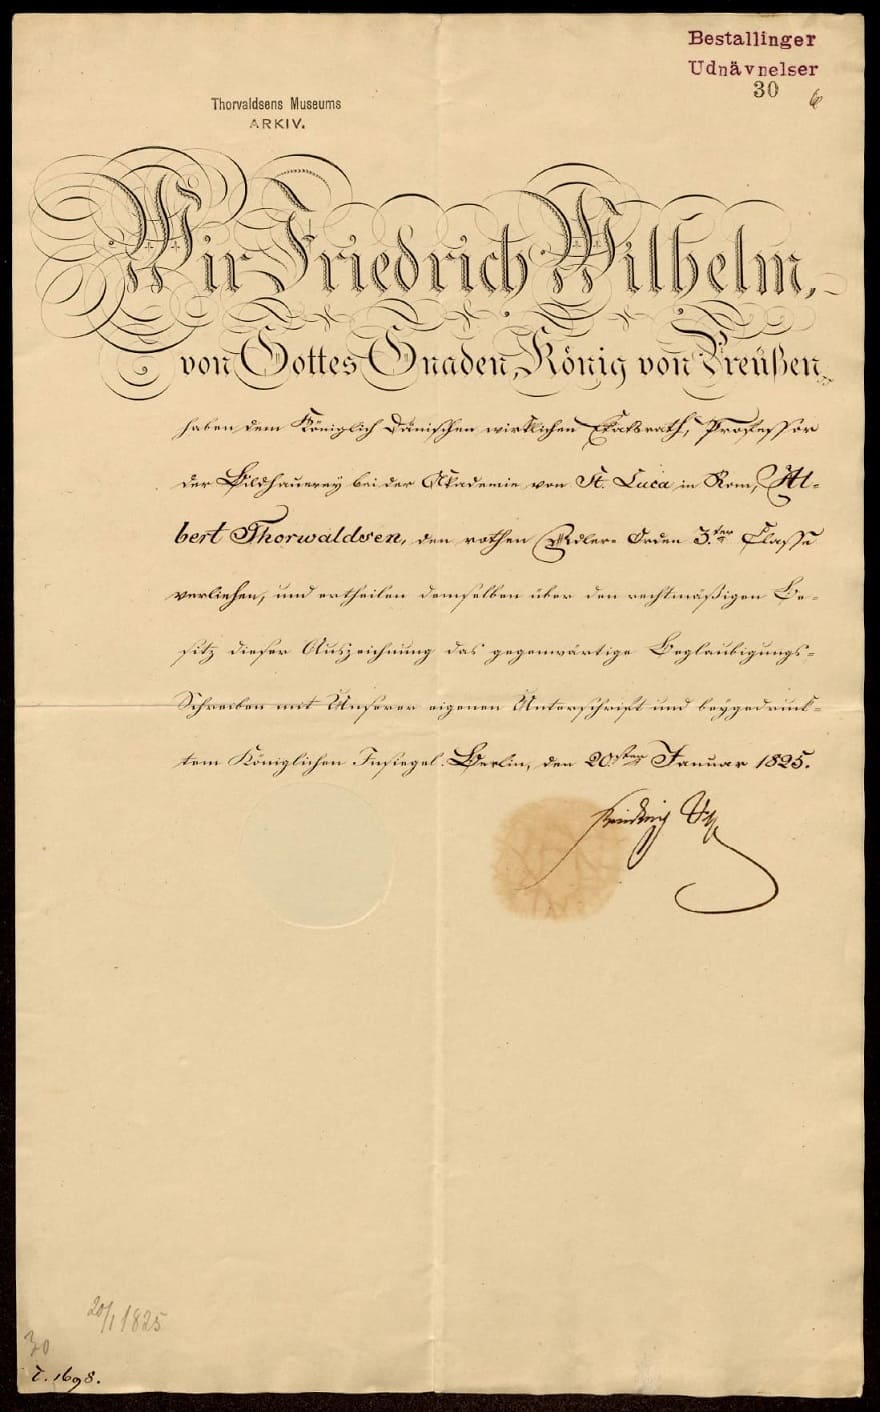 Bestallinger
Udnävnelser
30
6
Thorvaldsens Museums
ARKIV.
Wir Friedrich Wilhelm,
von Gottes Gnaden, König von Preüßen
haben dem Königlich Dänischen wirklichen Etatsrath, Professor
der Bildhauerey bei der Akademie von St. Luca in Rom, Al-
bert Thorwaldsen, den rothen Adler-Orden 3.ter Classe
verliehen, und ertheilen demselben über den rechtmäßigen Be-
sitz dieser Auszeichnung das gegenwärtige Beglaubigungs-
Schreiben mit Unserer eigenen Unterschrift und beygedruck-
tem Königlichen Insiegel. Berlin, den 20sten Januar 1825.
Friedrich Wilhelm
20/1 1825
30
T. 1698.